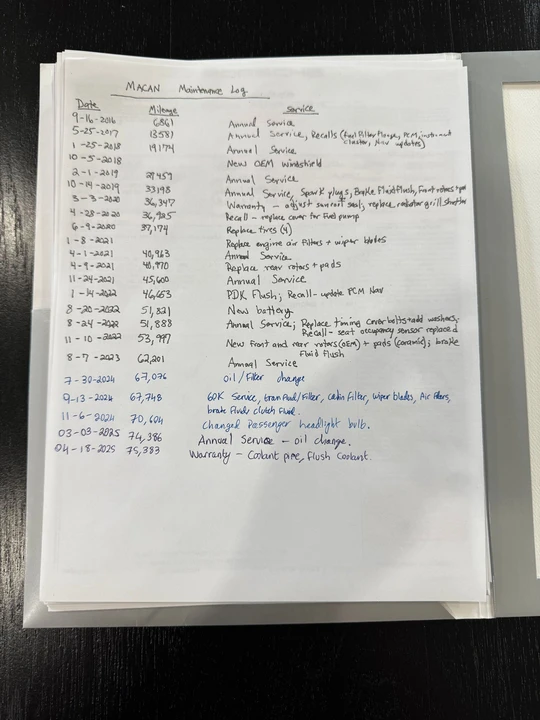 MACAN Maintenance Log
Date Mileage Service
9-16-2016 6861 Annual Service
5-25-2017 13581 Annual Service, Recalls (fuel filter flange, PCM, instrument
cluster, Nav updates)
1-25-2018 19174 Annual Service
10-5-2018 New OEM windshield
2-1-2019 27459 Annual Service
10-14-2019 33198 Annual Service, Spark plugs, Brake Fluid flush, Front rotors + pad
3-3-2020 36,347 Warranty - adjust sunroof seal; replace radiator grill shutter
4-28-2020 36,925 Recall - replace cover for fuel pump
6-9-2020 37,174 Replace tires (4)
1-8-2021 Replace engine air filters + wiper blades
4-1-2021 40,963 Annual Service
4-9-2021 40,970 Replace rear rotors + pads
11-24-2021 45,600 Annual Service
1-14-2022 46,453 PDK Flush; Recall - update PCM Nav
8-20-2022 51,821 New battery
8-24-2022 51,888 Annual Service; Replace timing cover bolts + add washers,
Recall - seat occupancy sensor replaced
11-10-2022 53,997 New Front and rear rotors (OEM) + pads (ceramic); brake
Fluid flush
8-7-2023 62,201 Annual Service
7-30-2024 67,076 Oil/Filter change
9-13-2024 67,748 60K Service, tran Fluid/Filter, cabin Filter, wiper blades, Air Filters,
brake Fluid, clutch Fluid.
11-6-2024 70,604 Changed Passenger headlight bulb.
03-03-2025 74,386 Annual Service - oil change.
04-18-2025 75,383 Warranty - Coolant pipe, flush Coolant.